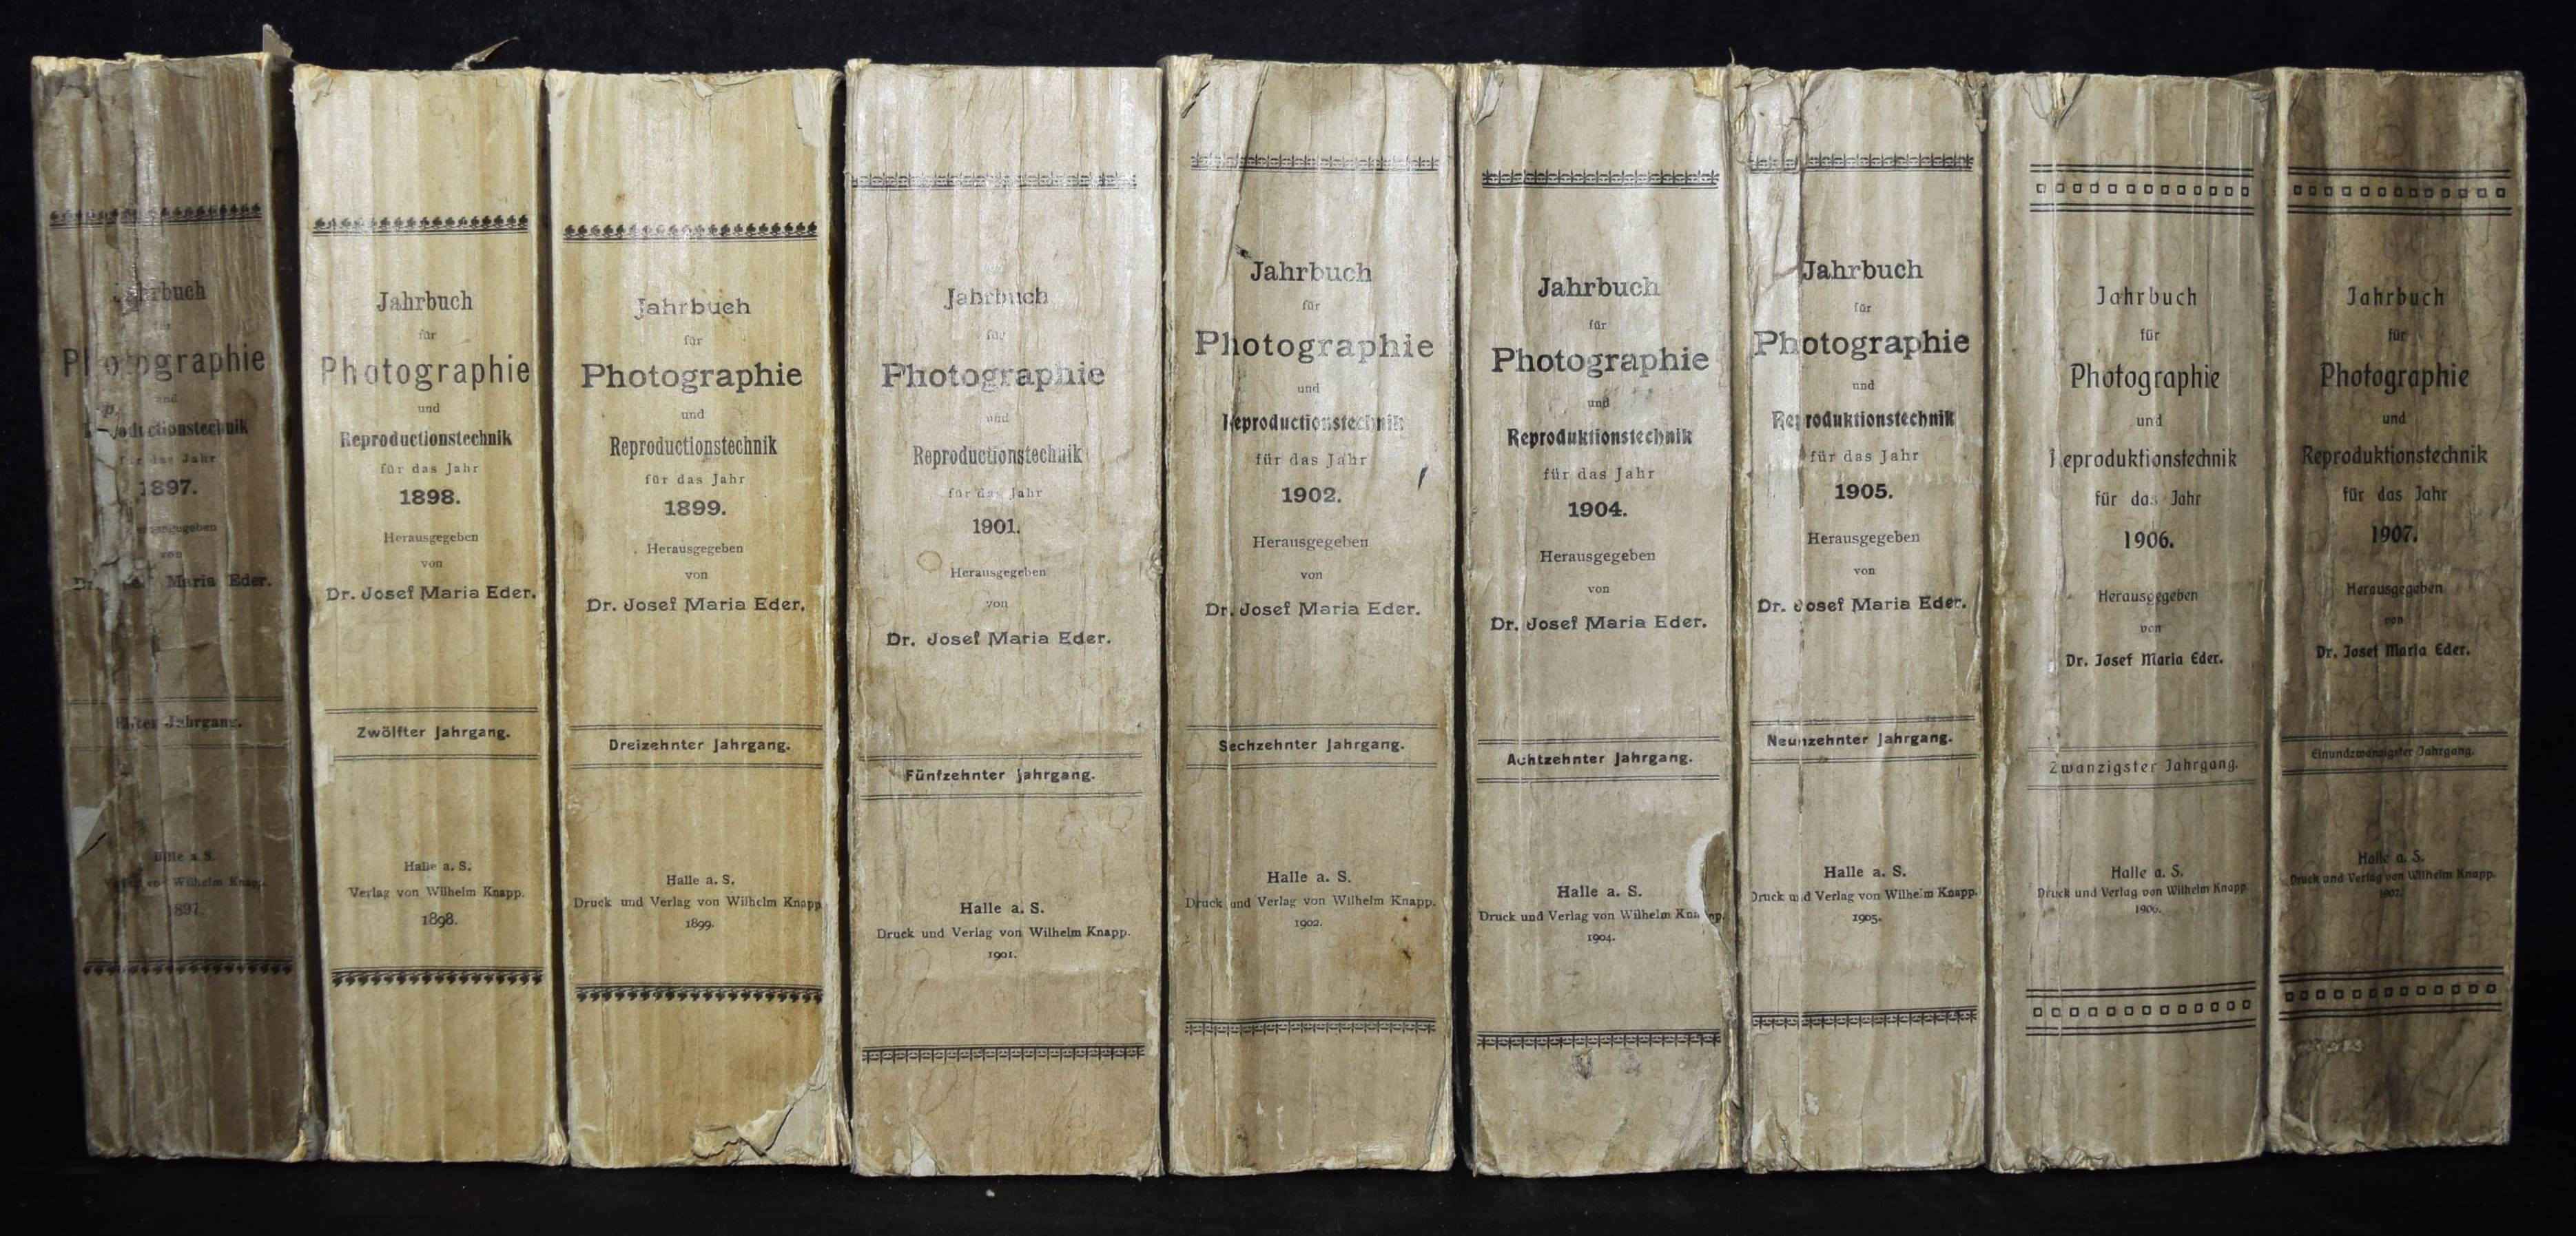 Photographie
1897.
Maria Eder.
Jahrgang.
Wilhelm Knapp.
1897.
Jahrbuch
für
Photographie
und
Reproductionstechnik
für das Jahr
1898.
Herausgegeben
von
Dr. Josef Maria Eder.
Zwölfter Jahrgang.
Halle a. S.
Verlag von Wilhelm Knapp.
1898.
Jahrbuch
für
Photographie
und
Reproductionstechnik
für das Jahr
1899.
Herausgegeben
von
Dr. Josef Maria Eder.
Dreizehnter Jahrgang.
Halle a. S.
Druck und Verlag von Wilhelm Knapp
1899.
Jahrbuch
für
Photographie
und
Reproductionstechnik
für das Jahr
1901.
Herausgegeben
von
Dr. Josef Maria Eder.
Fünfzehnter Jahrgang.
Halle a. S.
Druck und Verlag von Wilhelm Knapp.
1901.
Jahrbuch
für
Photographie
und
Reproductionstechnik
für das Jahr
1902.
Herausgegeben
von
Dr. Josef Maria Eder.
Sechzehnter Jahrgang.
Halle a. S.
Druck und Verlag von Wilhelm Knapp.
1902.
Jahrbuch
für
Photographie
und
Reproduktionstechnik
für das Jahr
1904.
Herausgegeben
von
Dr. Josef Maria Eder.
Achtzehnter Jahrgang.
Halle a. S.
Druck und Verlag von Wilhelm Knapp.
1904.
Jahrbuch
für
Photographie
und
Reproduktionstechnik
für das Jahr
1905.
Herausgegeben
von
Dr. Josef Maria Eder.
Neunzehnter Jahrgang.
Halle a. S.
Druck und Verlag von Wilhelm Knapp.
1905.
Jahrbuch
für
Photographie
und
Reproduktionstechnik
für das Jahr
1906.
Herausgegeben
von
Dr. Josef Maria Eder.
Zwanzigster Jahrgang.
Halle a. S.
Druck und Verlag von Wilhelm Knapp.
1906.
Jahrbuch
für
Photographie
und
Reproduktionstechnik
für das Jahr
1907.
Herausgegeben
von
Dr. Josef Maria Eder.
Einundzwanzigster Jahrgang.
Halle a. S.
Druck und Verlag von Wilhelm Knapp.
1907.